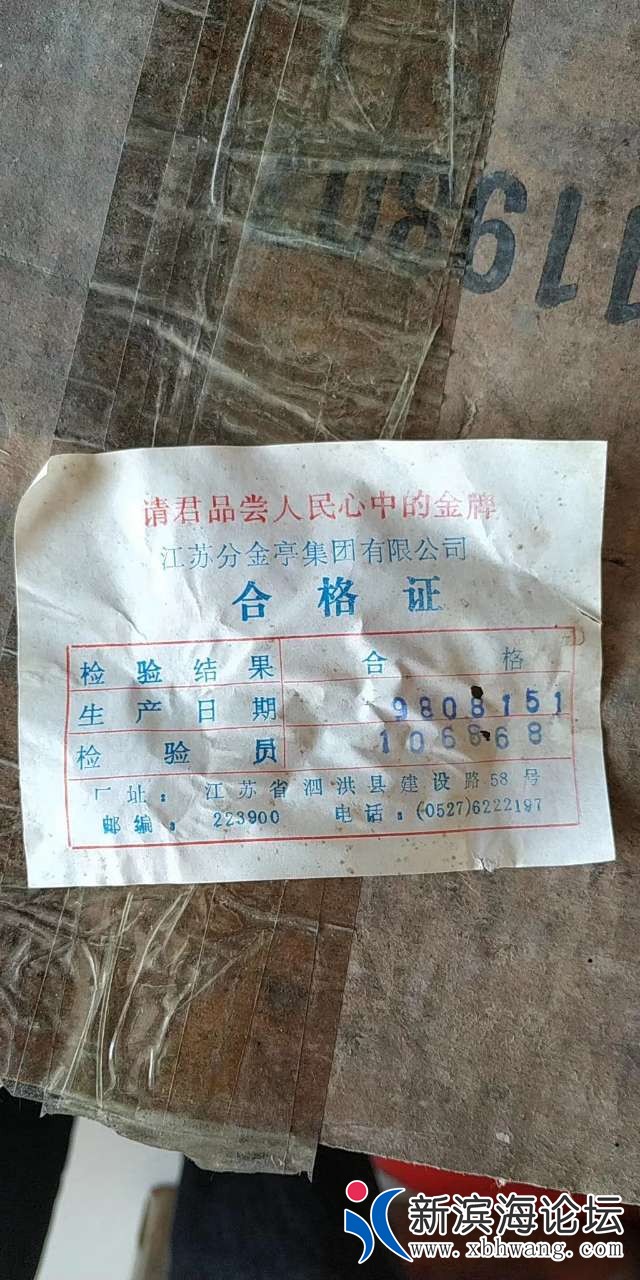 11980
请君品尝人民心中的金牌
江苏分金亭集团有限公司
合格证
检验结果 合格
生产日期 9808151
检验员 106868
厂址：江苏省泗洪县建设路58号
邮编：223900 电话：(0527)6222197
新滨海论坛
www.xbhwang.com